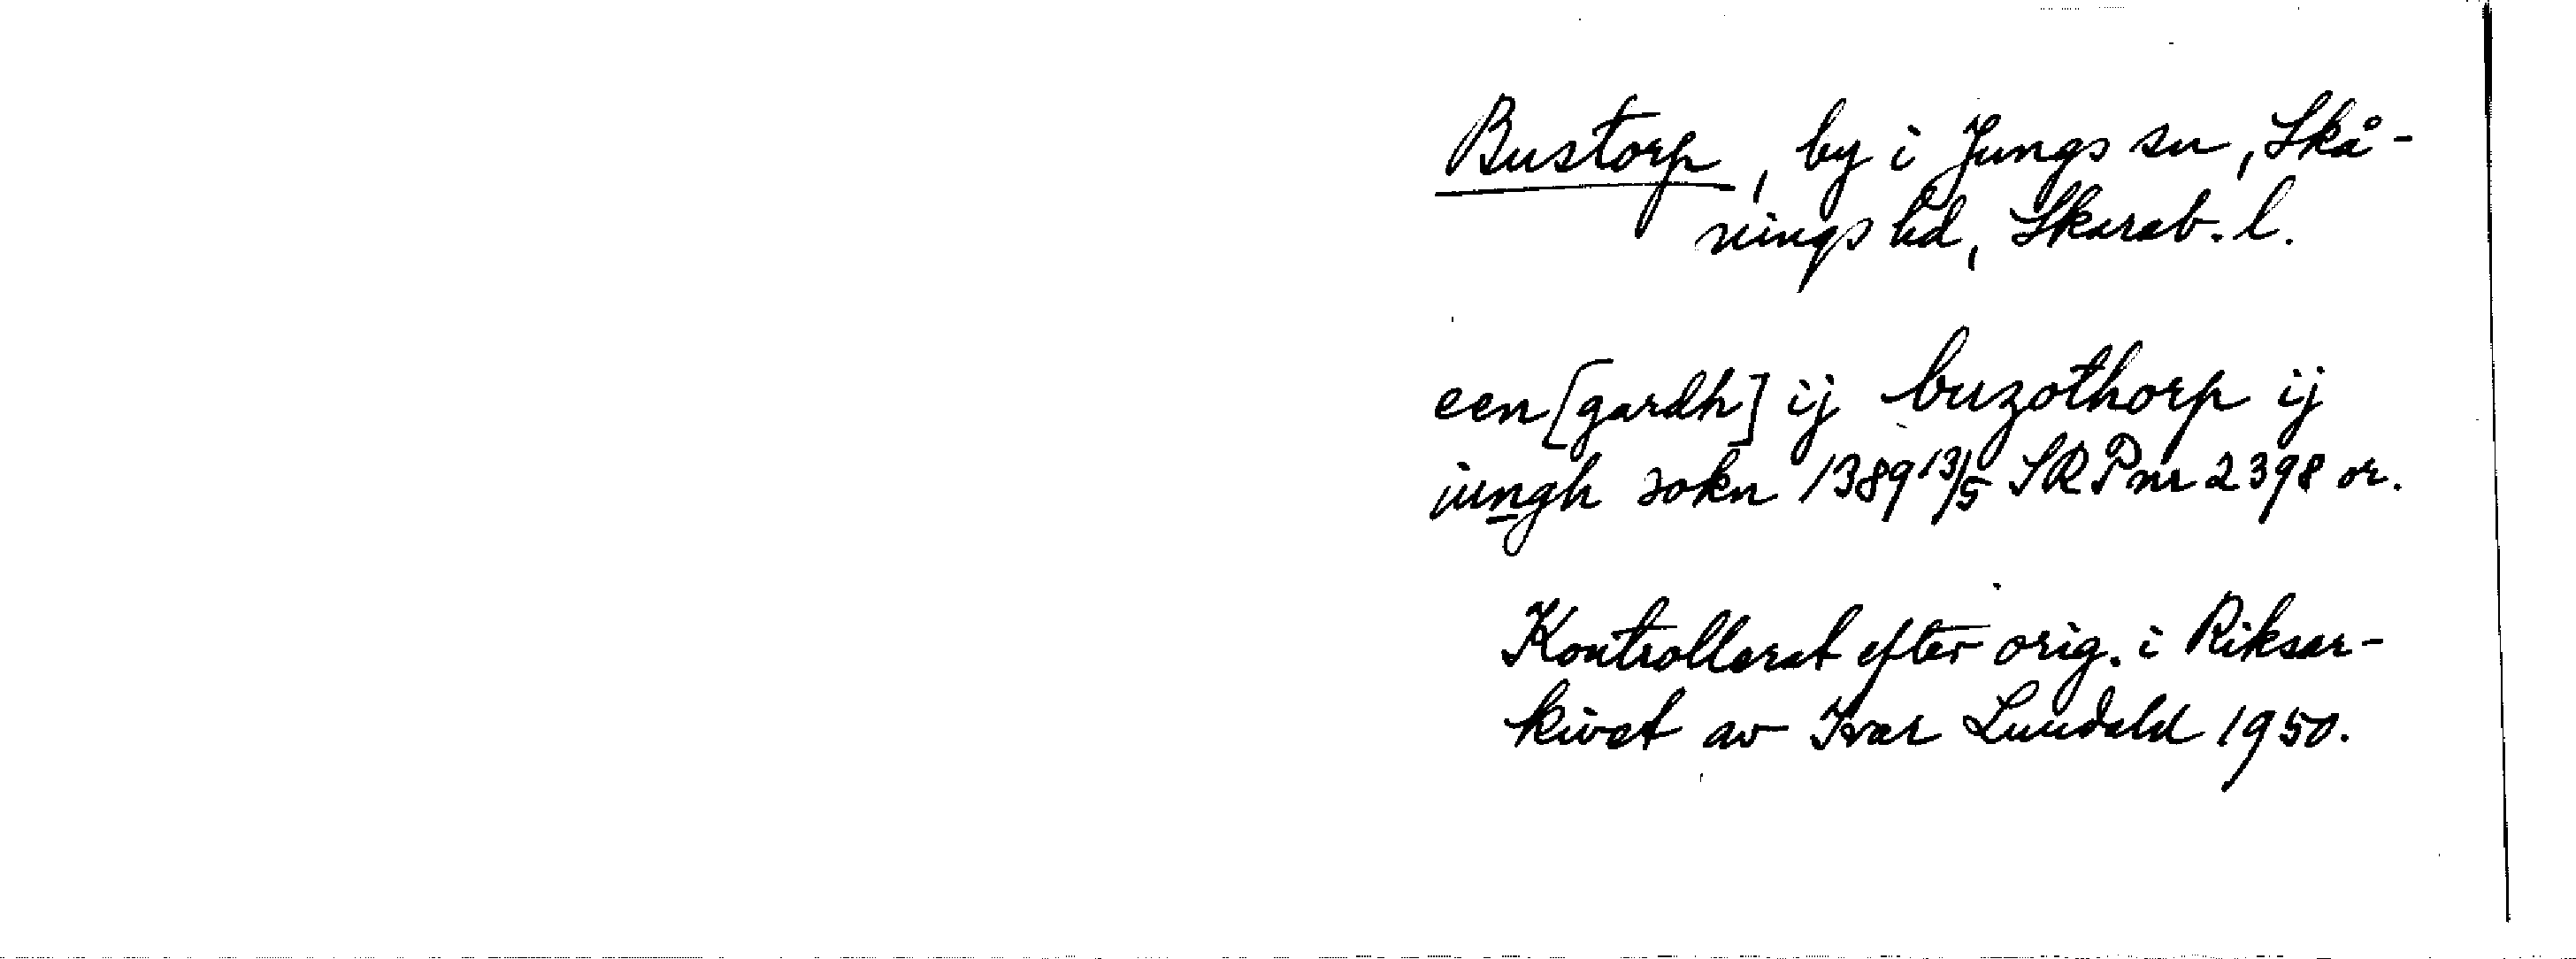 Bustorp, by i Jungs sn, Skå-
nings hd, Skarab. l.
een [gardh] ij buzothorp ij
iungh sokn 1389 13/5 SRP nr 2398 or.
Kontrollerat efter orig. i Riksar-
kivet av Ivar Lundahl 1950.